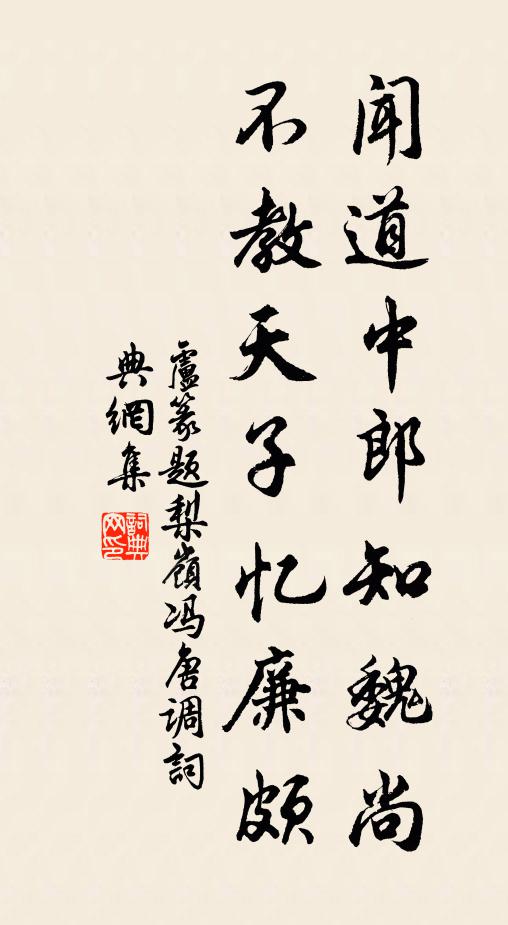 闻道中郎知魏尚
不教天子忆廉颇
盧篆题梨嶺冯唐调詞
典網集
詞典网印